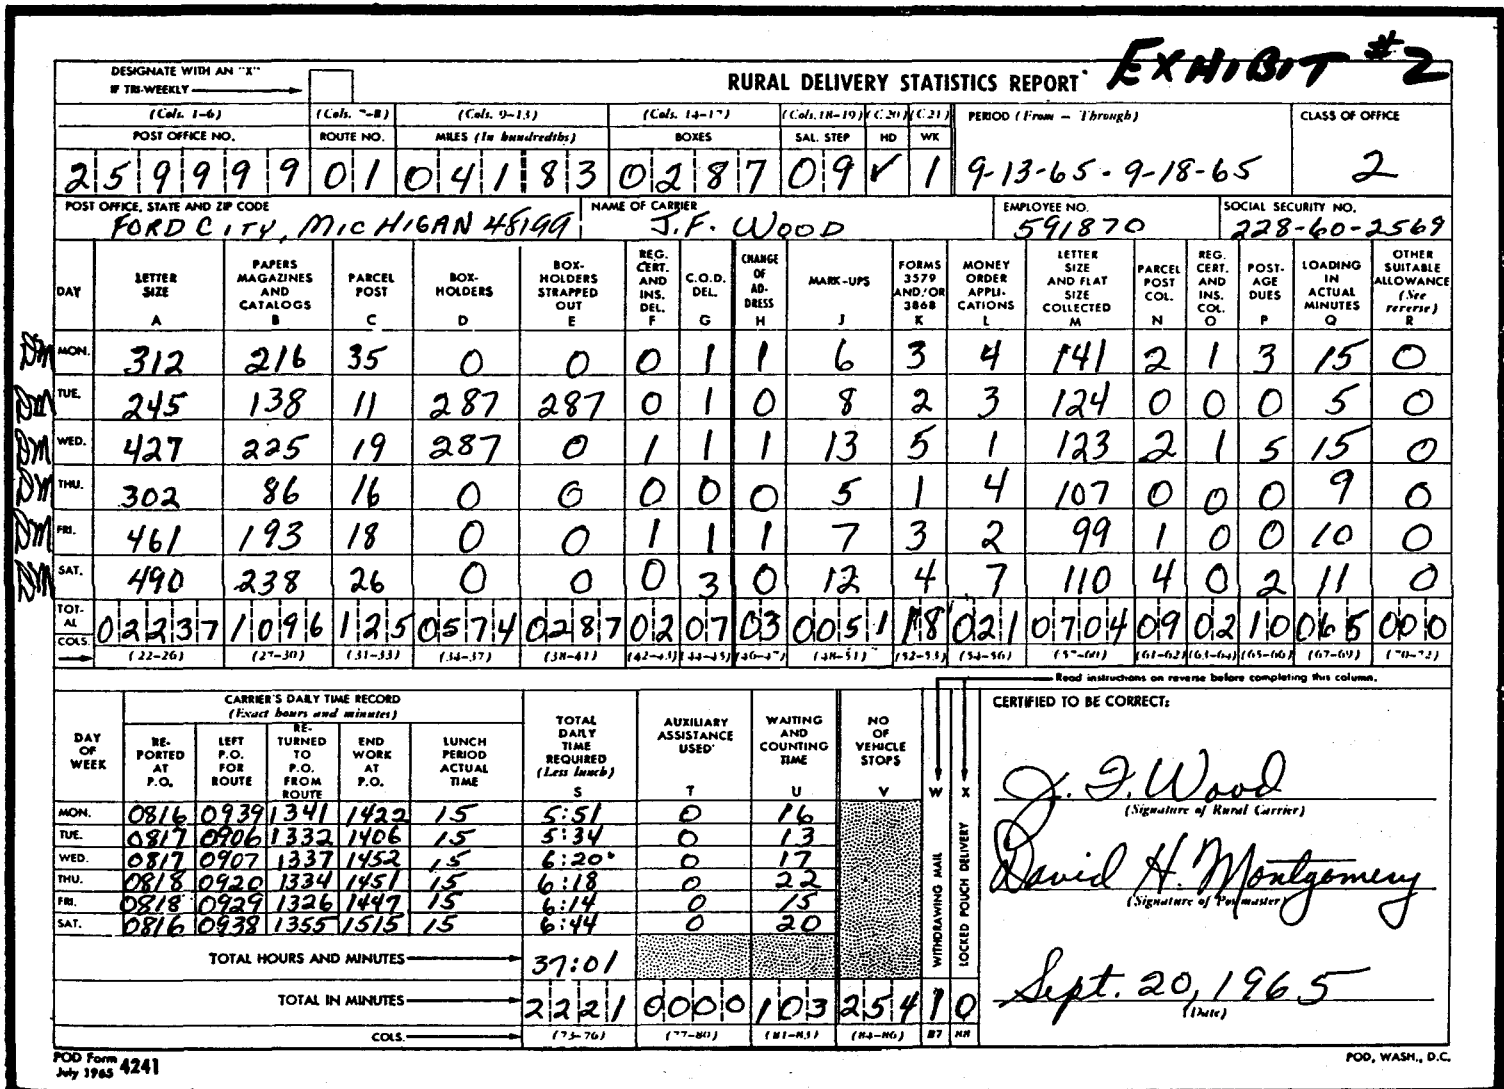 EXHIBIT #2
DESIGNATE WITH AN "X" IF TRI-WEEKLY
RURAL DELIVERY STATISTICS REPORT
(Cols. 1-6) (Cols. 7-8) (Cols. 9-13) (Cols. 14-17) (Cols. 18-19) (C.20) (C.21) PERIOD (From — Through) CLASS OF OFFICE
POST OFFICE NO. ROUTE NO. MILES (In hundredths) BOXES SAL. STEP HD WK
259999 01 04183 0287 09 ✓ 1 9-13-65 - 9-18-65 2
POST OFFICE, STATE AND ZIP CODE NAME OF CARRIER EMPLOYEE NO. SOCIAL SECURITY NO.
FORD CITY, MICHIGAN 48199 J.F. WOOD 591870 228-60-2569
DAY LETTER SIZE A PAPERS MAGAZINES AND CATALOGS B PARCEL POST C BOX-HOLDERS D BOX-HOLDERS STRAPPED OUT E REG. CERT. AND INS. DEL. F C.O.D. DEL. G CHANGE OF AD-DRESS H MARK-UPS J FORMS 3579 AND/OR 3868 K MONEY ORDER APPLI-CATIONS L LETTER SIZE AND FLAT SIZE COLLECTED M PARCEL POST COL. N REG. CERT. AND INS. COL. O POST-AGE DUES P LOADING IN ACTUAL MINUTES Q OTHER SUITABLE ALLOWANCE (See reverse) R
MON. 312 216 35 0 0 0 1 1 6 3 4 141 2 1 3 15 0
TUE. 245 138 11 287 287 0 1 0 8 2 3 124 0 0 0 5 0
WED. 427 225 19 287 0 1 1 1 13 5 1 123 2 1 5 15 0
THU. 302 86 16 0 0 0 0 0 5 1 4 107 0 0 0 9 0
FRI. 461 193 18 0 0 1 1 1 7 3 2 99 1 0 0 10 0
SAT. 490 238 26 0 0 0 3 0 12 4 7 110 4 0 2 11 0
TOT-AL 02237 1096 125 0574 0287 02 07 03 0051 18 021 0704 09 02 10 065 000
COLS. (22-26) (27-30) (31-33) (34-37) (38-41) (42-43) (44-45) (46-47) (48-51) (52-53) (54-56) (57-60) (61-62) (63-64) (65-66) (67-69) (70-72)
Read instructions on reverse before completing this column.
DAY OF WEEK CARRIER'S DAILY TIME RECORD (Exact hours and minutes) RE-PORTED AT P.O. LEFT P.O. FOR ROUTE RE-TURNED TO P.O. FROM ROUTE END WORK AT P.O. LUNCH PERIOD ACTUAL TIME TOTAL DAILY TIME REQUIRED (Less lunch) S AUXILIARY ASSISTANCE USED T WAITING AND COUNTING TIME U NO OF VEHICLE STOPS V W X
WITHDRAWING MAIL
LOCKED POUCH DELIVERY
MON. 0816 0939 1341 1422 15 5:51 0 16
TUE. 0817 0906 1332 1406 15 5:34 0 13
WED. 0817 0907 1337 1452 15 6:20 0 17
THU. 0818 0920 1334 1451 15 6:18 0 22
FRI. 0818 0929 1326 1447 15 6:14 0 15
SAT. 0816 0938 1355 1515 15 6:44 0 20
TOTAL HOURS AND MINUTES 37:01
TOTAL IN MINUTES 2221 0000 103 254 1 0
COLS. (73-76) (77-80) (81-83) (84-86) 87 88
CERTIFIED TO BE CORRECT:
J. F. Wood
(Signature of Rural Carrier)
David H. Montgomery
(Signature of Postmaster)
Sept. 20, 1965
(Date)
POD Form July 1965 4241
POD, WASH., D.C.